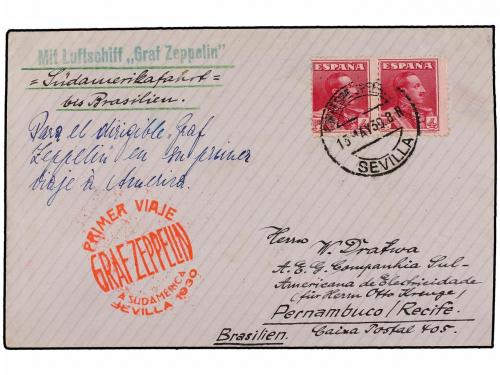 Mit Luftschiff „Graf Zeppelin"
= Südamerikafahrt =
bis Brasilien.
Para el dirigible „Graf
Zeppelin" en su primer
viaje à America.
ESPANA
ESPANA
SEVILLA
PRIMER VIAJE
GRAF ZEPPELIN
A SUDAMERICA
SEVILLA 1930
Herrn W. Dratwa
A.E.G. Companhia Sul-
Americana de Electricidade
(für Herrn Otto Kreuge)
Pernambuco/Recife.
Brasilien. Caixa Postal 405.